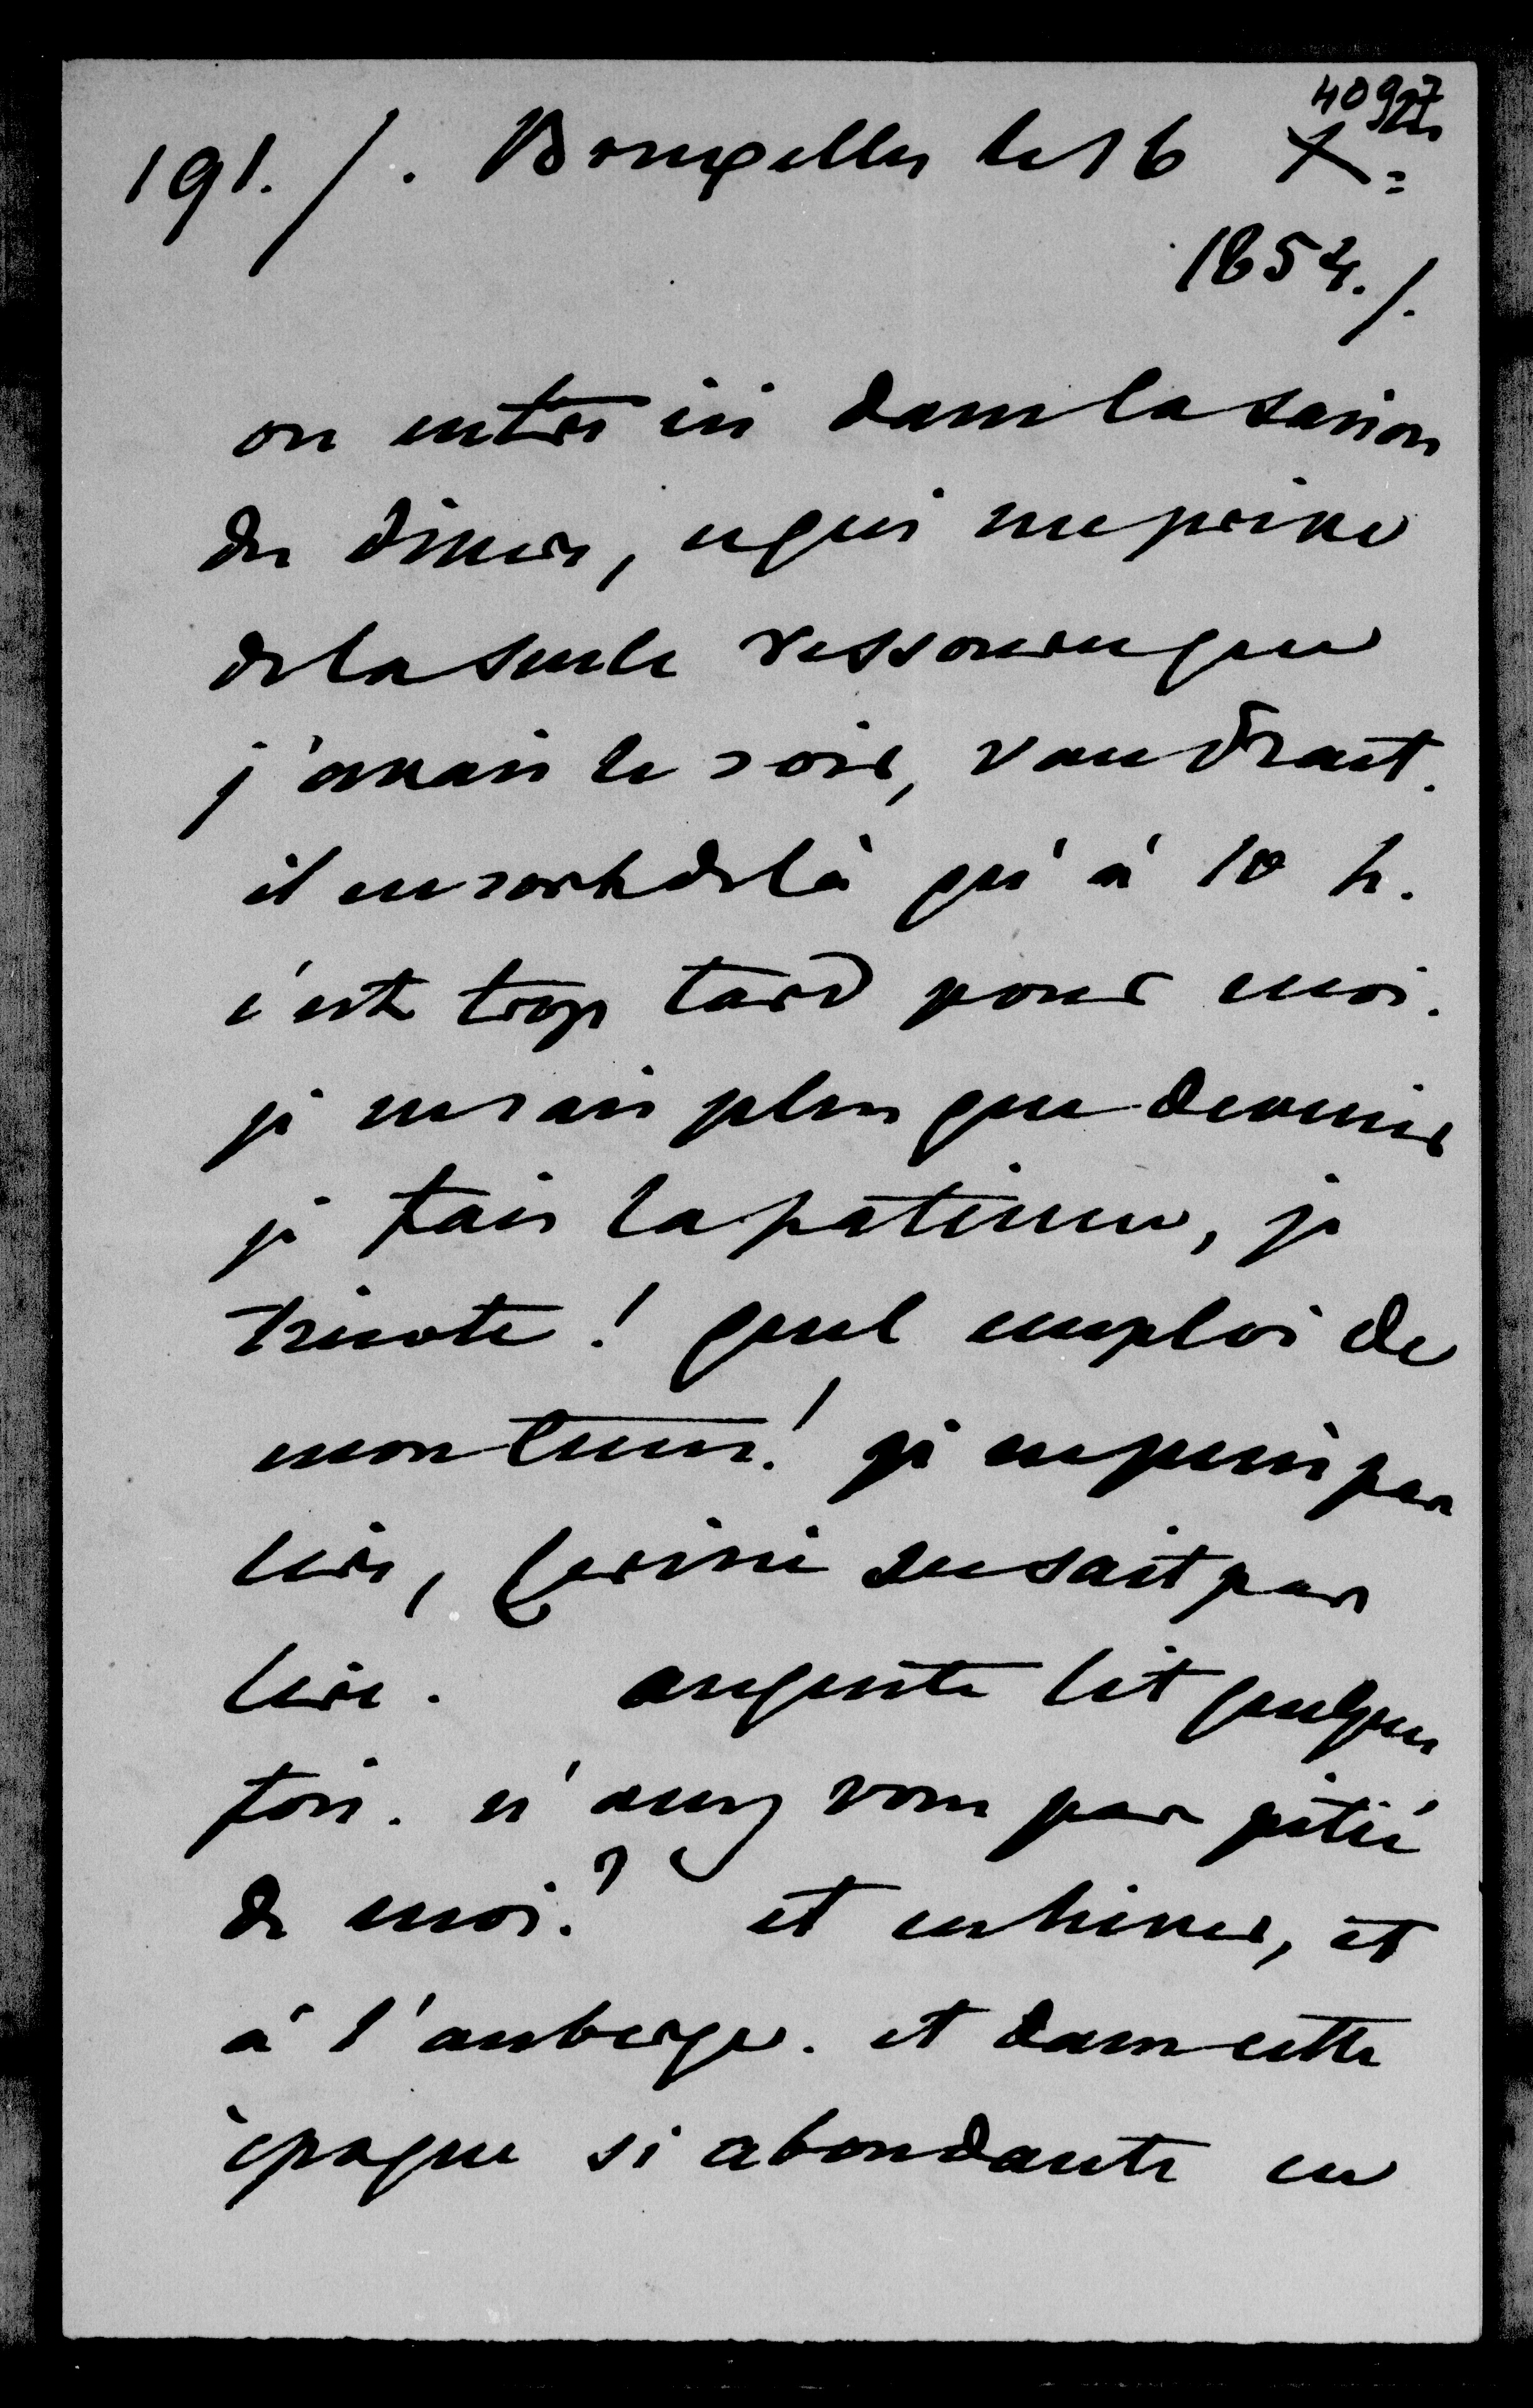 4092
191./. Bruxelles le 16 X=
1854./.
on entre ici dans la saison
des diners, ce qui me prive
de la seule ressource que
j'avais le soir, Van Straet.
il ne sort de là qu'à 10 h.
c'est trop tard pour moi.
je ne sais plus que devenir
je fais la patience, je
tricote ! quel emploi de
mon tems! je ne puis pas
lire, Cerini ne sait pas
lire. auguste lit quelque
fois. n'avez vous pas pitié
de moi ? et en hiver, et
à l'auberge. et dans cette
époque si abondante en